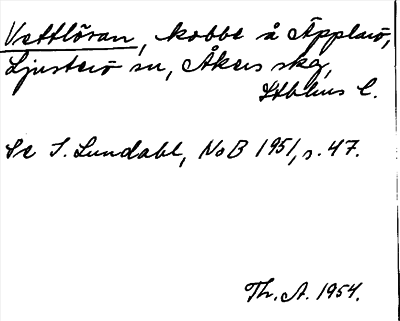 Vettlöran, kobbe å Äpplarö,
Ljusterö sn, Åkers skg,
Sthlms l.
Se I. Lundahl, NoB 1951, s. 47.
Th. A. 1954.